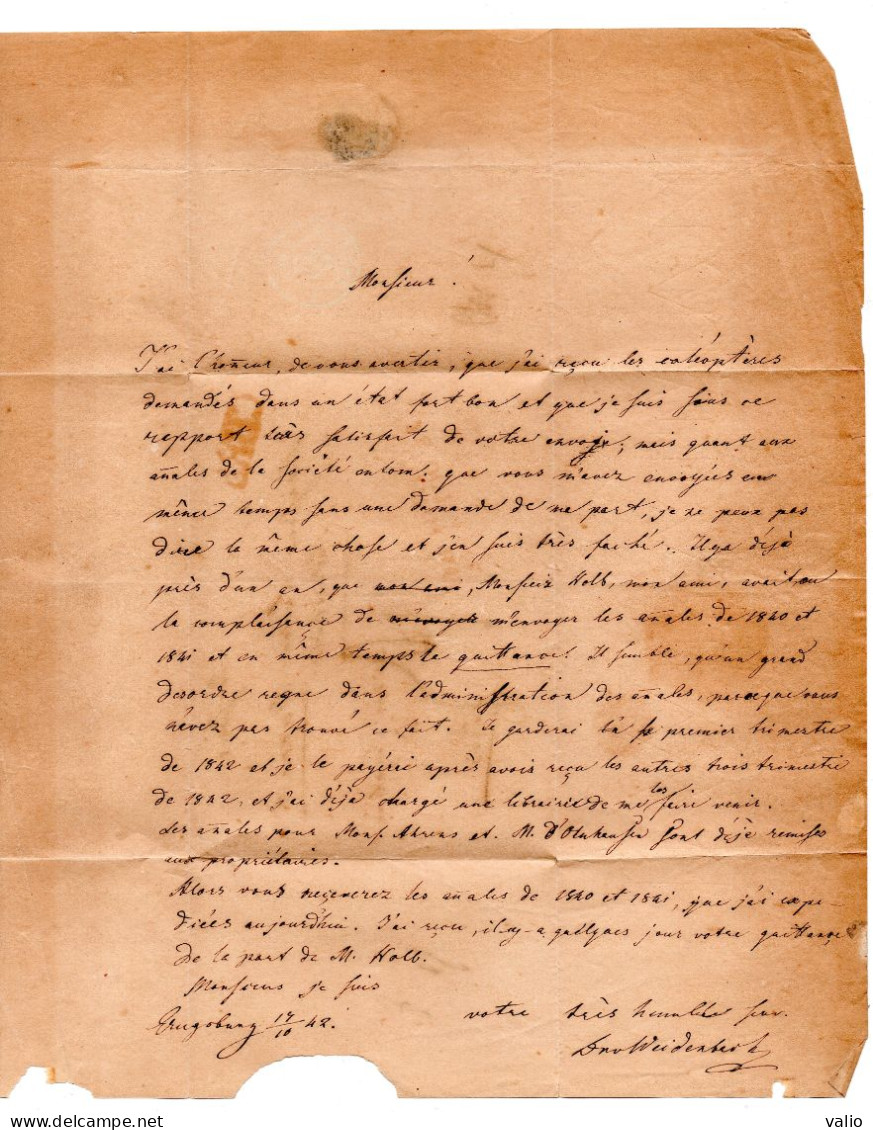 Monsieur !
J'ai l'honneur, de vous avertir, que j'ai reçu les coléoptères
demandés dans un état fort bon et que je suis sous ce
rapport très satisfait de votre envoye; mais quant aux
añales de la Société entom. que vous m'avez envoyées en
même temps sans une demande de ma part, je ne peux pas
dire la même chose et j'en suis très faché. Il ya déjà
près d'un an, que mon ami, Monsieur Kolb, mon ami, avait eu
la complaisance de m'envoye m'envoyer les añales de 1840 et
1841 et en même temps la quittance! Il semble, qu'un grand
desordre regne dans l'administration des añales, parceque vous
n'avez pas trouvé ce fait. Je garderai le premier trimestre
de 1842 et je le payerai après avois reçu les autres trois trimestre
de 1842, et j'ai déjà chargé une librairie de me les faire venir.
Les añales pour Mons. Ahrens et M. d'Olnhausen sont déjà remises
aux propriétaires.
Alors vous recevrez les añales de 1840 et 1841, que j'ai expe-
diées aujourd'hui. J'ai reçu, il-y-a quelques jour votre quittance
de la part de M. Kolb.
Monsieur je suis
votre très humble ser.
Augsburg 17/10 42.
Dr v Weidenbach
valio